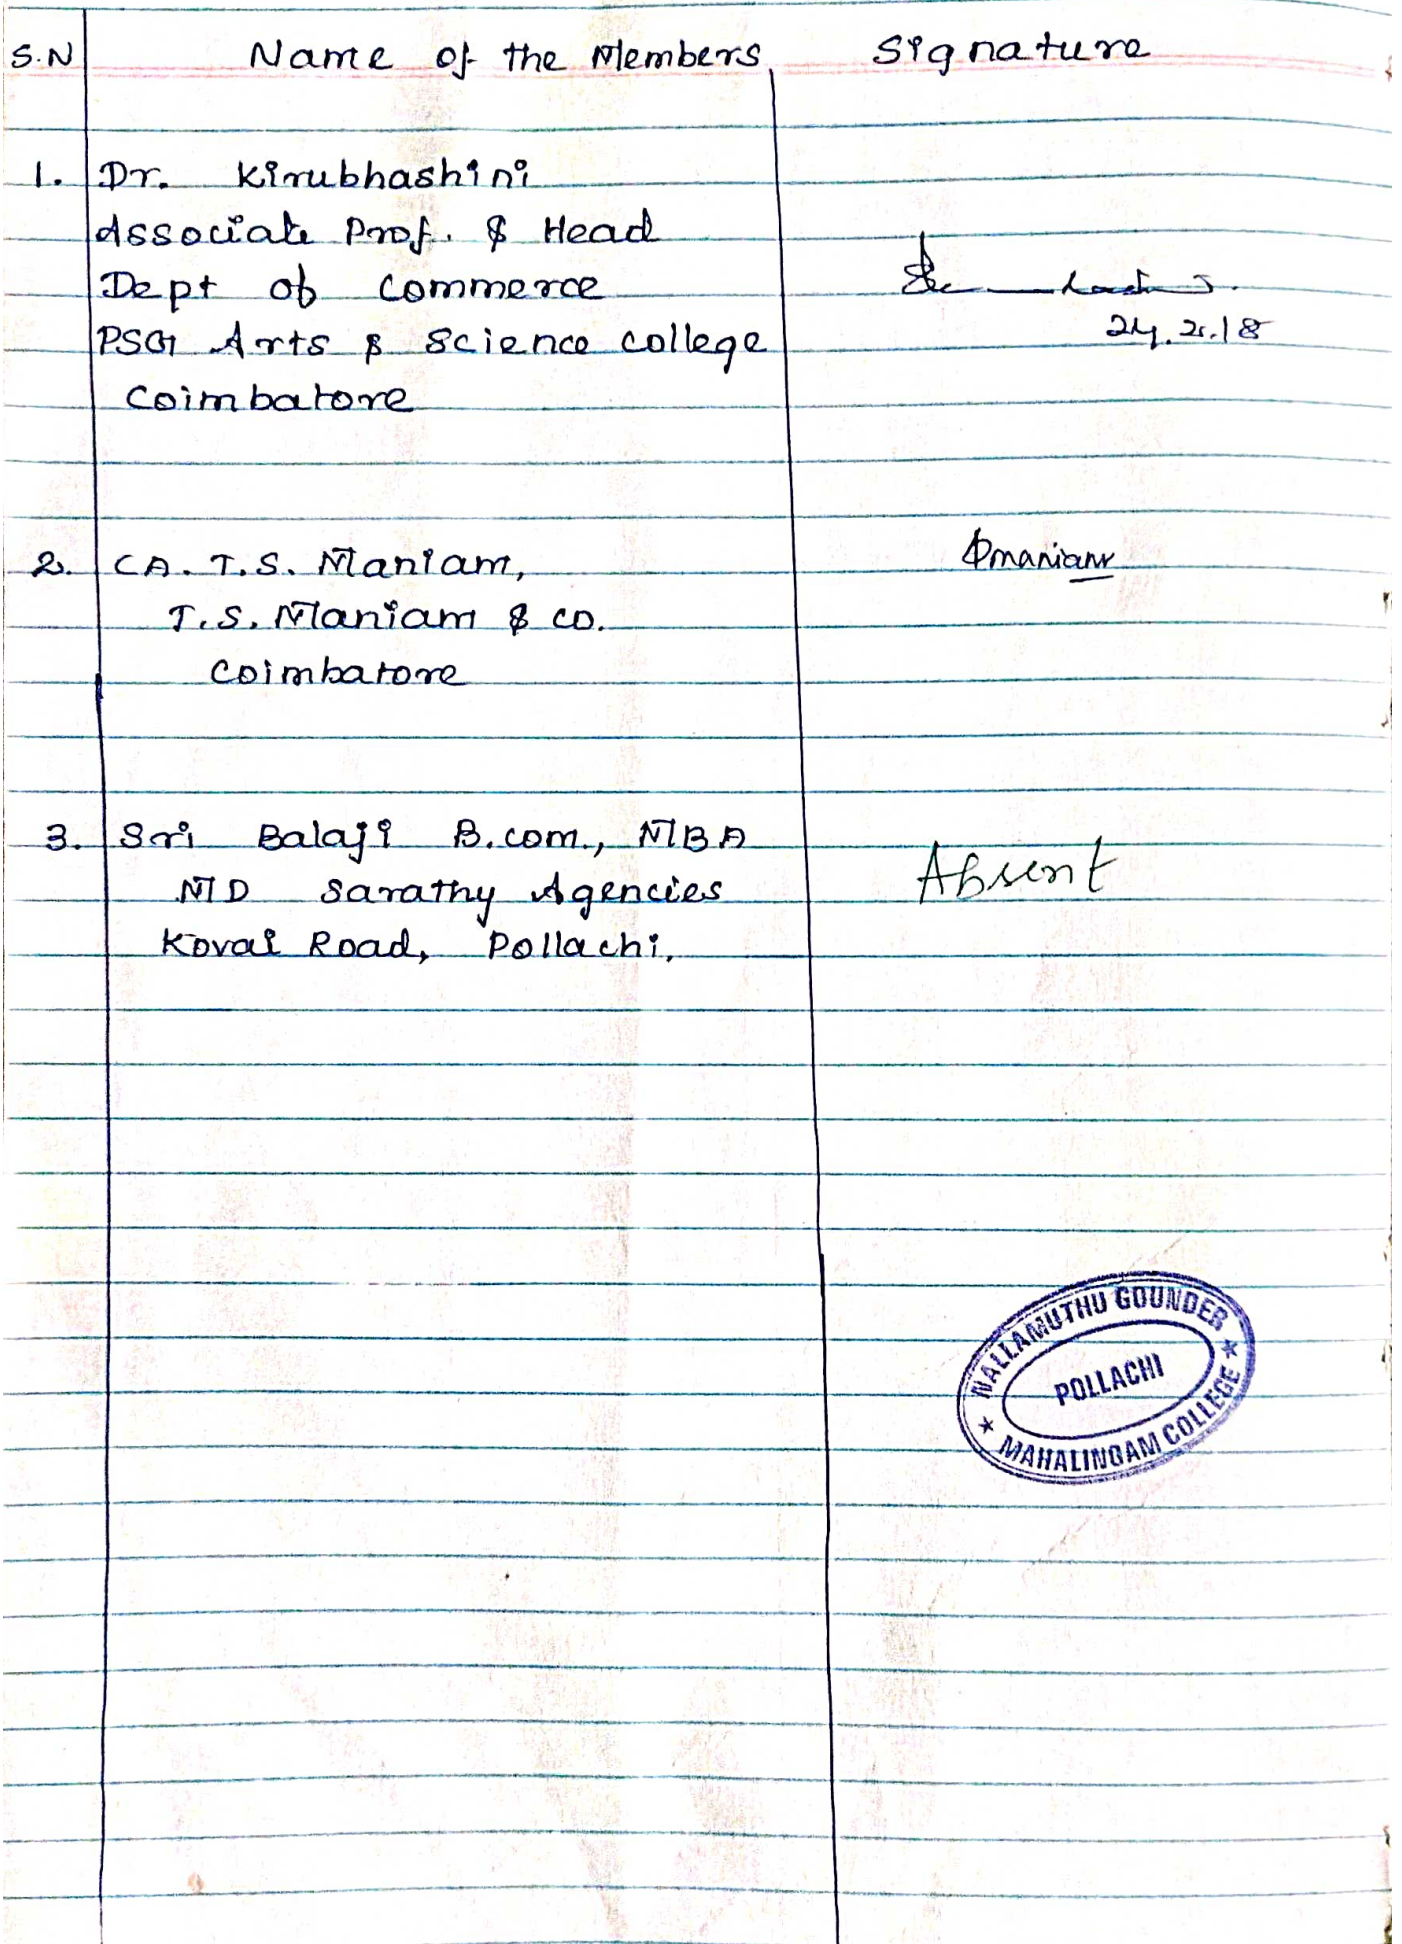 S.N Name of the Members Signature
1. Dr. Kirubhashini
Associate Prof. & Head
Dept of Commerce
PSG Arts & Science college
Coimbatore
24.2.18
2. CA. T.S. Maniam,
T.S. Maniam & co.
Coimbatore
3. Sri Balaji B.com., MBA
MD Sarathy Agencies
Kovai Road, Pollachi.
Absent
NALLAMUTHU GOUNDER
POLLACHI
MAHALINGAM COLLEGE